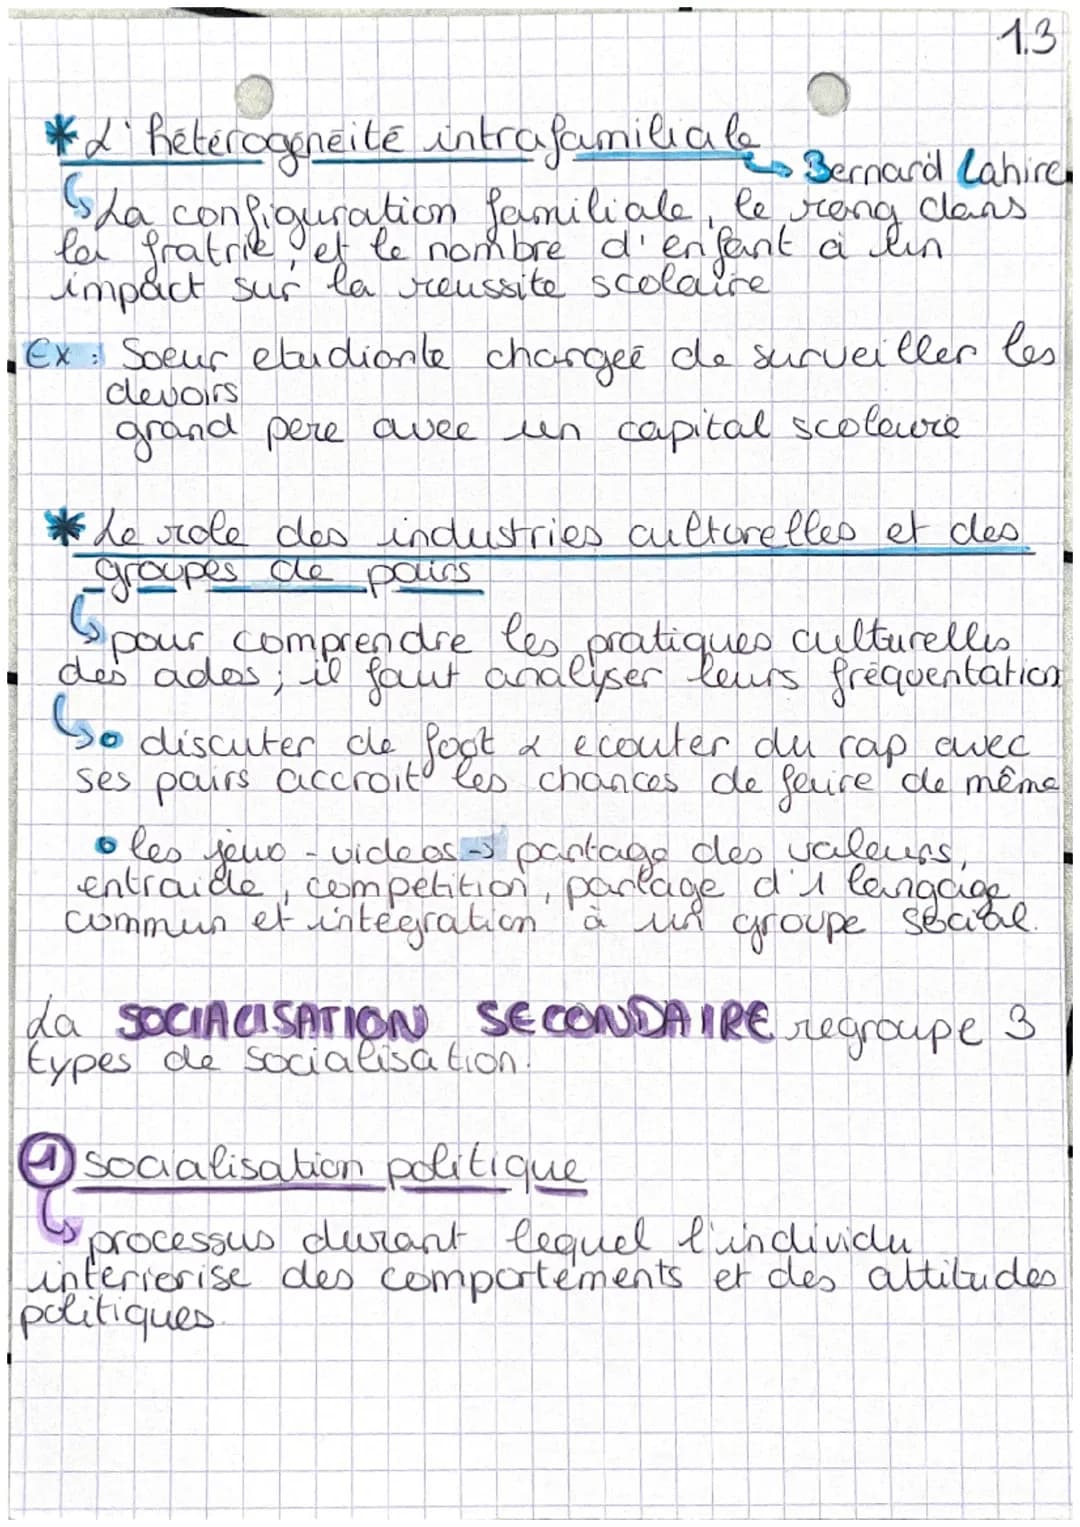 1.3
* L'hétérogénéité intrafamiliale
→ Bernard Lahire
↳ La configuration familiale, le rang dans
la fratrie, et le nombre d'enfant à un
impact sur la reussite scolaire
Ex : Soeur etudiante chargée de surveiller les
devoirs
grand pere avec un capital scolaire
* Le role des industries culturelles et des
groupes de pairs
↳ pour comprendre les pratiques culturelles
des ados ; il faut analyser leurs fréquentation
↳ • discuter de foot & ecouter du rap avec
ses pairs accroit les chances de faire de même
• les jeux-videos → partage des valeurs,
entraide, competition, partage d'1 langage
commun et intégration à un groupe social.
La SOCIALISATION SECONDAIRE regroupe 3
types de socialisation.
1 socialisation politique
↳ processus durant lequel l'individu
interiorise des comportements et des attitudes
politiques.